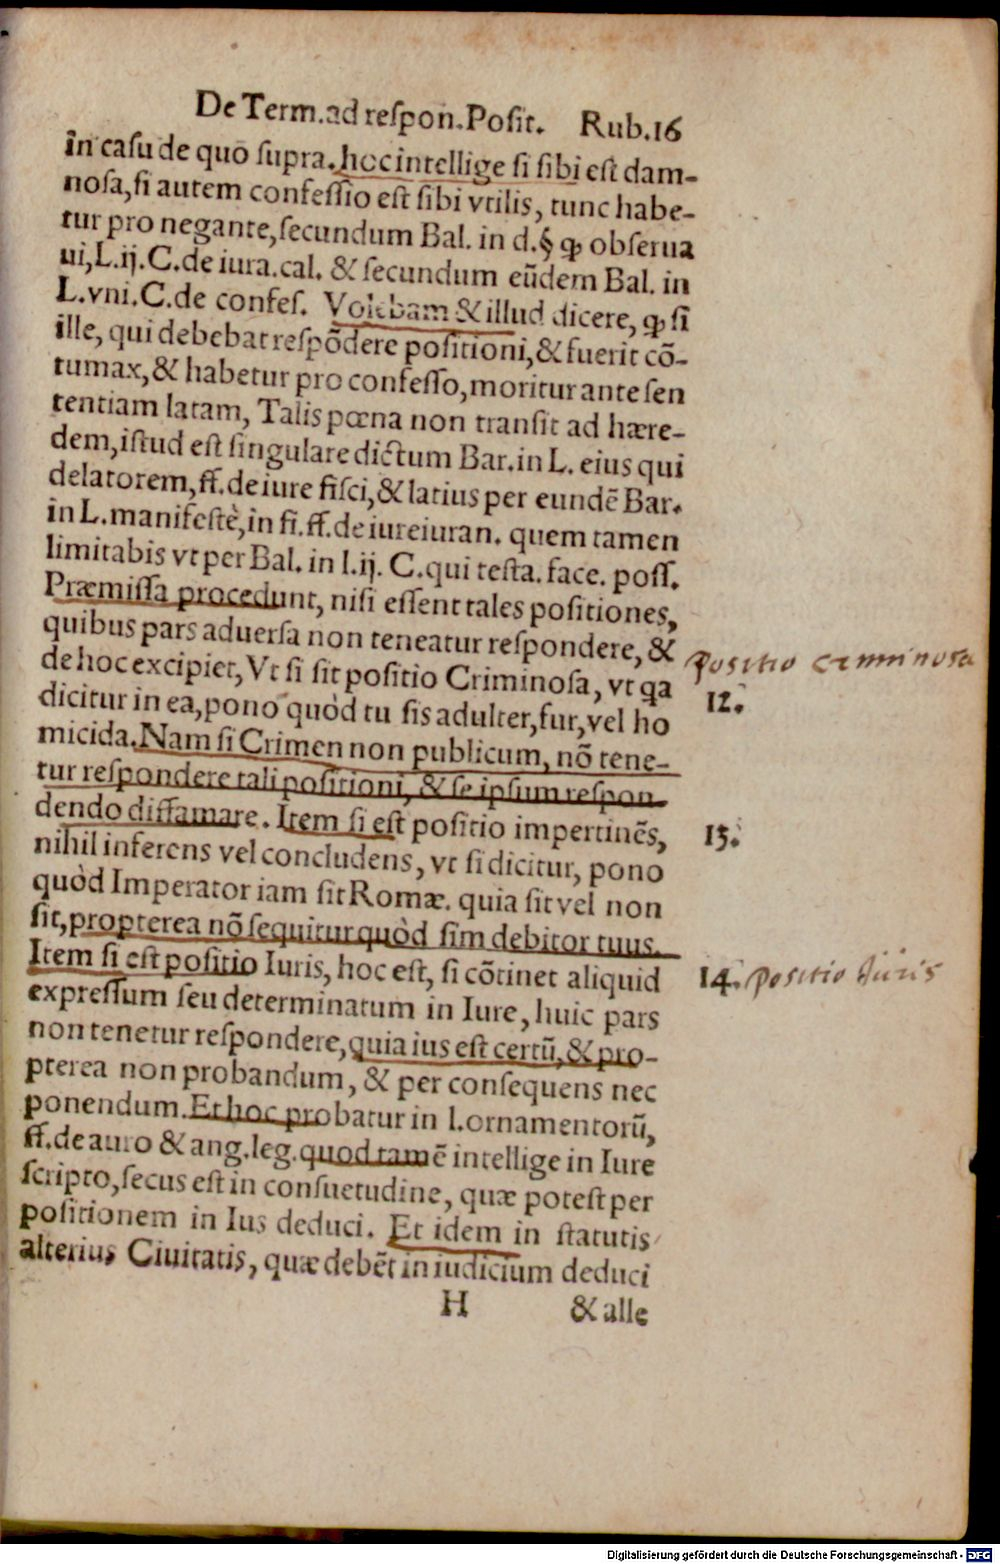 De Term. ad reſpon. Poſit. Rub. 16
in caſu de quo ſupra. hoc intellige ſi ſibi eſt dam-
noſa, ſi autem confeſſio eſt ſibi vtilis, tunc habe-
tur pro negante, ſecundum Bal. in d. § ꝙ obſerua
ui, L. ij. C. de iura. cal. & ſecundum eũdem Bal. in
L. vni. C. de confeſ. Volebam & illud dicere, ꝙ ſi
ille, qui debebat reſpõdere poſitioni, & fuerit cõ-
tumax, & habetur pro confeſſo, moritur ante ſen
tentiam latam, Talis pœna non tranſit ad hære-
dem, iſtud eſt ſingulare dictum Bar. in L. eius qui
delatorem, ff. de iure fiſci, & latius per eundẽ Bar.
in L. manifeſtè, in fi. ff. de iureiuran. quem tamen
limitabis vt per Bal. in l. ij. C. qui teſta. face. poſſ.
Præmiſſa procedunt, niſi eſſent tales poſitiones,
quibus pars aduerſa non teneatur reſpondere, &
de hoc excipiet, Vt ſi ſit poſitio Criminoſa, vt qa
dicitur in ea, pono quòd tu ſis adulter, fur, vel ho
micida. Nam ſi Crimen non publicum, nõ tene-
tur reſpondere tali poſitioni, & ſe ipſum reſpon
dendo diffamare. Item ſi eſt poſitio impertinẽs,
nihil inferens vel concludens, vt ſi dicitur, pono
quòd Imperator iam ſit Romæ. quia ſit vel non
ſit, propterea nõ ſequitur quòd ſim debitor tuus.
Item ſi eſt poſitio Iuris, hoc eſt, ſi cõtinet aliquid
expreſſum ſeu determinatum in Iure, huic pars
non tenetur reſpondere, quia ius eſt certũ, & pro-
pterea non probandum, & per conſequens nec
ponendum. Et hoc probatur in l. ornamentorũ,
ff. de auro & ang. leg. quod tamẽ intellige in Iure
ſcripto, ſecus eſt in conſuetudine, quæ poteſt per
poſitionem in Ius deduci. Et idem in ſtatutis
alterius Ciuitatis, quæ debẽt in iudicium deduci
H & alle
Positio criminosa
12.
13.
14. Positio Iuris
Digitalisierung gefördert durch die Deutsche Forschungsgemeinschaft - DFG